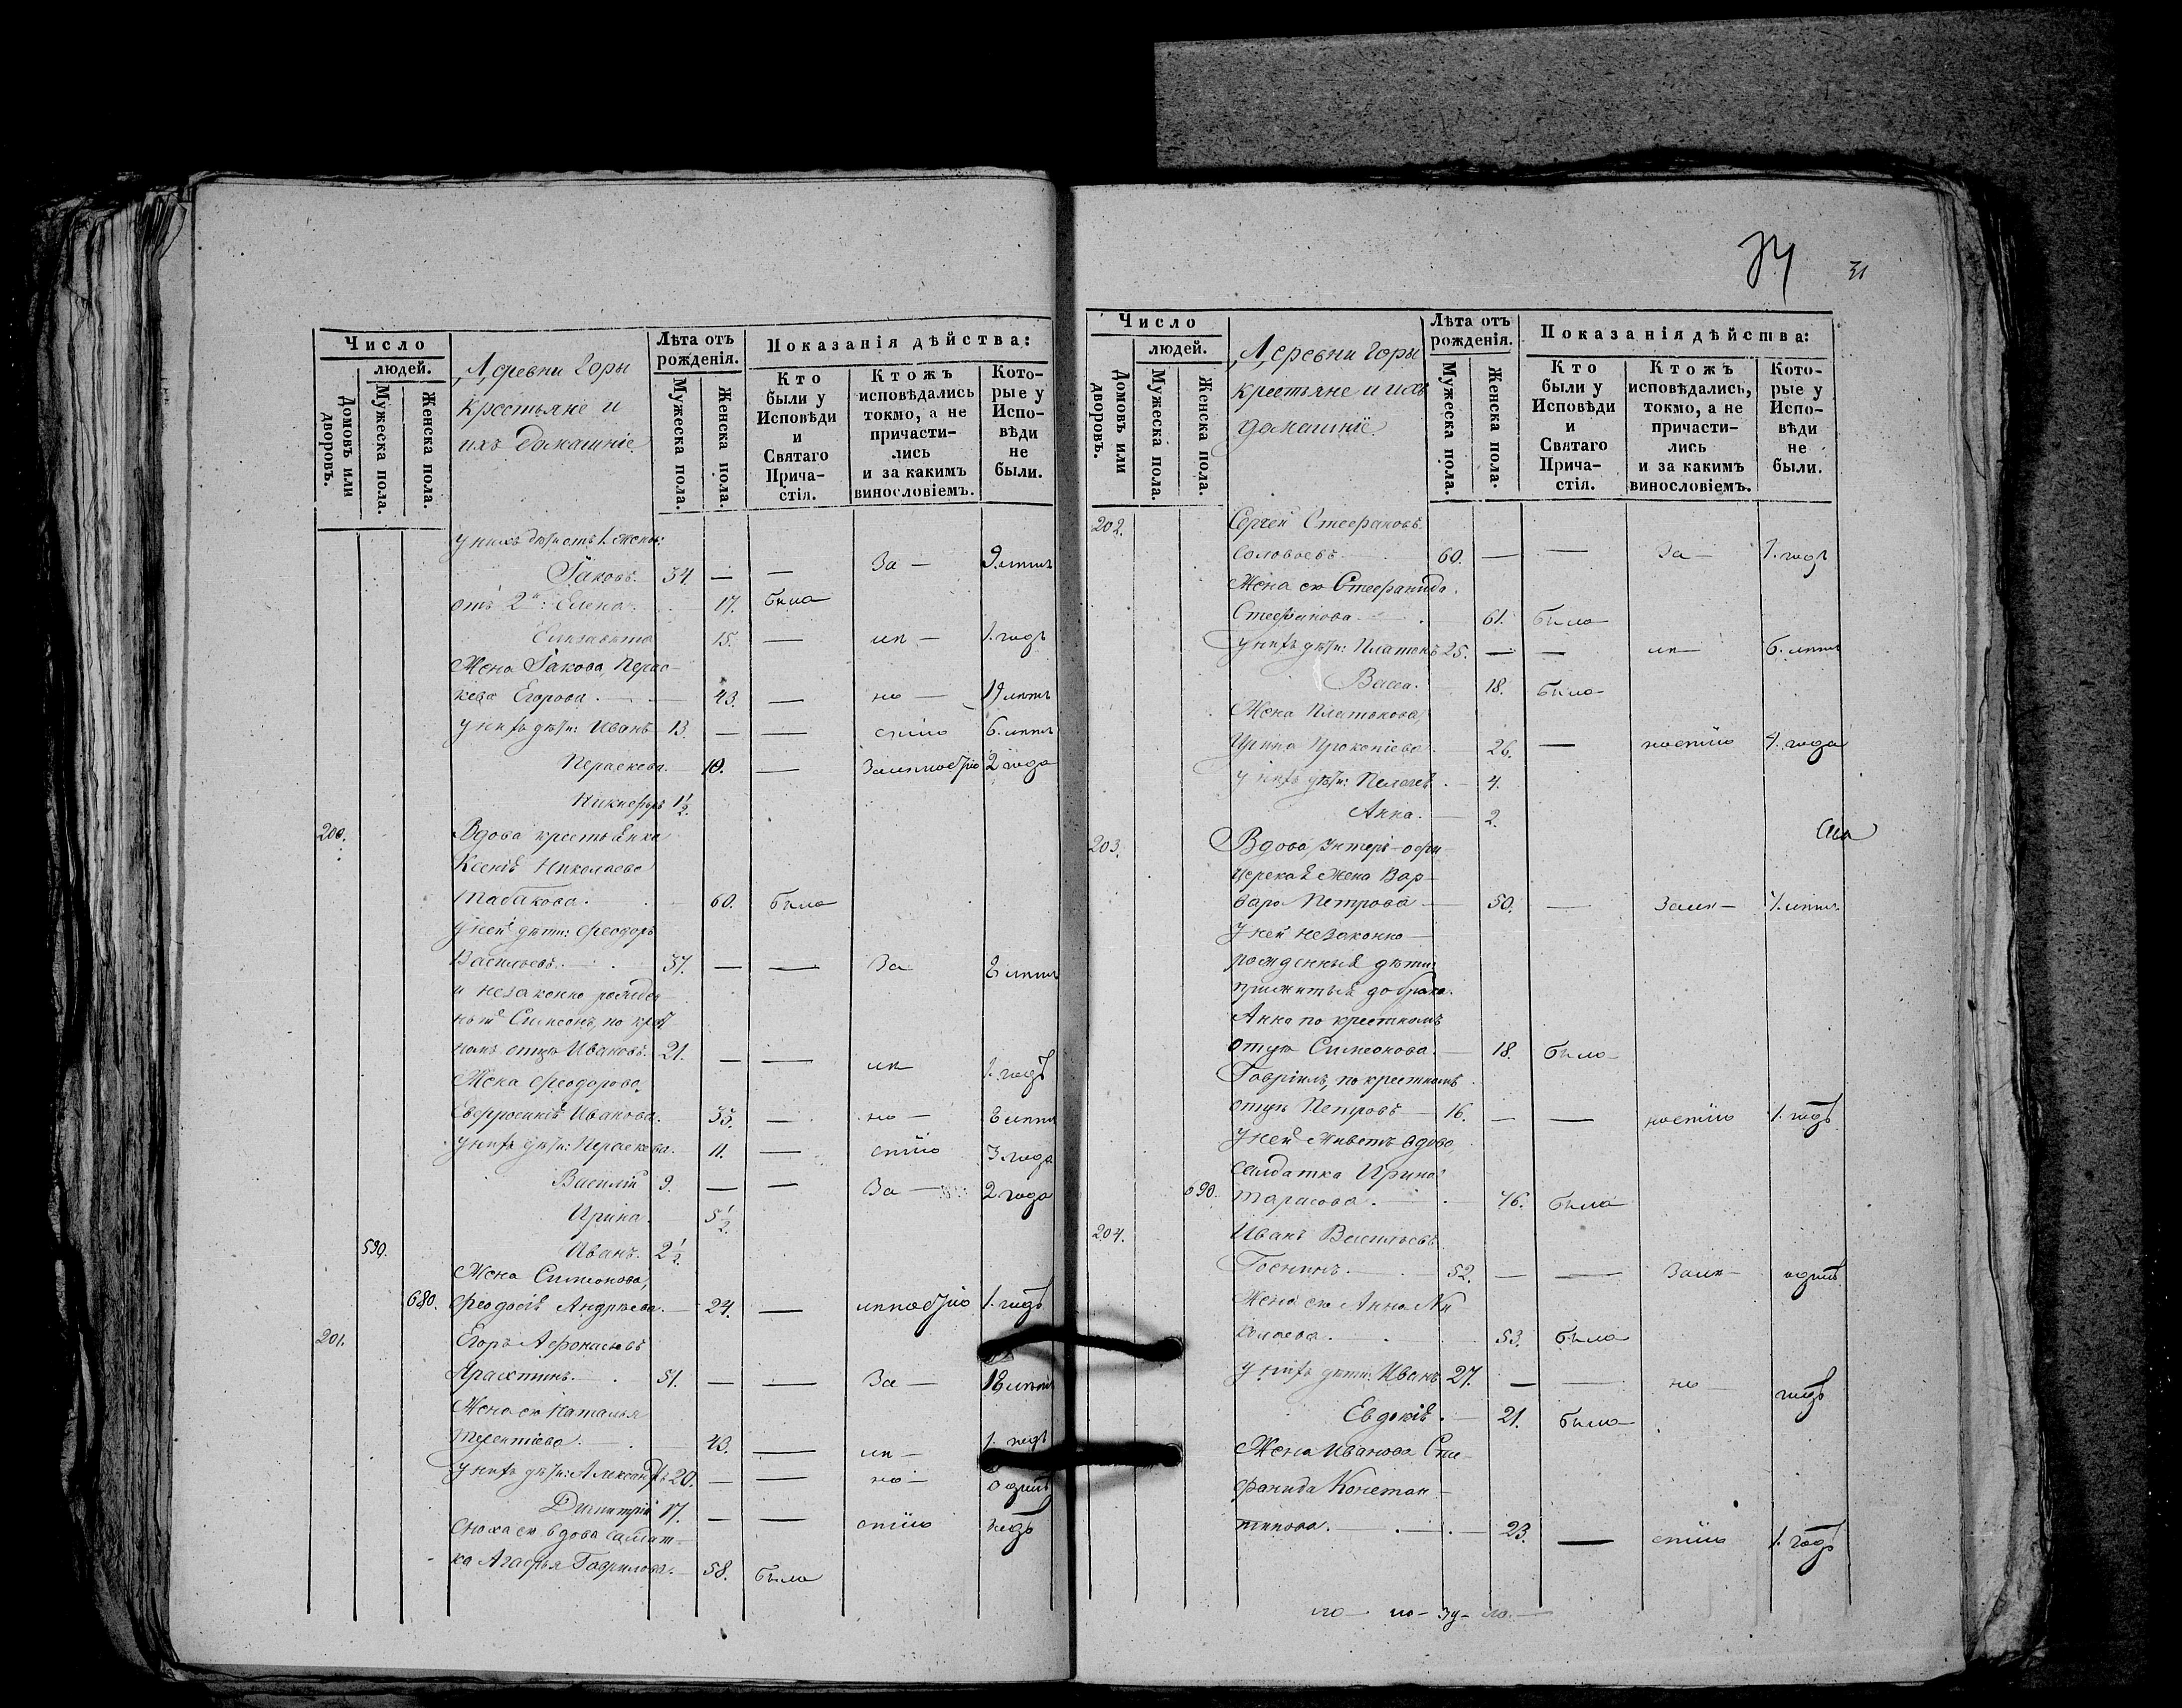 Число
людей.
Домовъ или дворовъ.
Мужеска пола.
Женска пола.
Деревни Горы
крестьяне и
ихъ домашніе
Лѣта отъ рожденія.
Мужеска пола.
Женска пола.
Показанія дѣйства:
Кто были у Исповѣди и Святаго Прича-стія.
Ктожъ исповѣдались токмо, а не причасти-лись и за какимъ винословіемъ.
Кото-рые у Испо-вѣди не были.
у нихъ дѣти отъ 1 жены:
Іаковъ. 34. — — За — 9. лѣтъ
отъ 2й: Елена. 17. была
Елизавета 15. — лѣ — 1. годъ
Жена Іакова, Парас-
кева Егорова. 43. — но — 19 лѣтъ
у нихъ дѣти: Иванъ 13. — — стію 6. лѣтъ
Параскева. 10. — За лѣностію 2 года
Никифоръ 1½.
200. Вдова крестьянка
Ксенія Николаева
Табакова. 60. была
у ней дѣти: Феодоръ
Васильевъ. 37. — — За 8 лѣтъ
и незаконно рожден
ный Симеонъ, по крест
номъ отцѣ Ивановъ. 21. — — лѣ 1. годъ
Жена Феодорова
Евфросинія Иванова. 35. — но — 8 лѣтъ
у нихъ дѣти: Параскева. 11. — стію 3 года
Василій 9. — — За — 2 года
Ирина. 5½.
590. Иванъ. 2½.
Жена Симеонова,
680. Феодосія Андреева. — 24. — лѣностію 1. годъ
201. Егоръ Афонасьевъ
51. — — За — 18 лѣтъ
Жена его Наталья
Терентіева. 43. — лѣ — 1. годъ
у нихъ дѣти: Александръ 20. — — но — одинъ
Димитрій 17. — — стію годъ
Сноха его вдова салдат-
ка Агафья Гаврилова. — 58. была
31
Число
людей.
Домовъ или дворовъ.
Мужеска пола.
Женска пола.
Деревни Горы
крестьяне и ихъ
домашніе
Лѣта отъ рожденія.
Мужеска пола.
Женска пола.
Показанія дѣйства:
Кто были у Исповѣди и Святаго Прича-стія.
Ктожъ исповѣдались, токмо, а не причасти-лись и за какимъ винословіемъ.
Кото-рые у Испо-вѣди не были.
202. Сергей Стефановъ
Соловьевъ. 60. — — За — 1. годъ
Жена его Стефанида
Стефанова. 61. была
у нихъ дѣти: Платонъ 25. — — лѣ — 6. лѣтъ
Васса. 18. была
Жена Платонова,
Ирина Прокопіева. — 26. — ностію 4. года
у нихъ дѣти: Пелагея. — 4.
Анна. — 2.
203. Вдова Унтеръ-офи-
церская жена Вар-
вара Петрова — 50. — За лѣ — 7. лѣтъ
у ней незаконно
рожденныя дѣти
прижитыя до брака.
Анна по крестномъ
отцѣ Симеонова. — 18. была
Гавріилъ, по крестномъ
отцѣ Петровъ — 16. — — ностію 1. годъ
у ней живетъ вдова,
салдатка Ирина
690. Тарасова. 76. была
204. Иванъ Васильевъ
52. — — За лѣ — одинъ
Жена его Анна Ни
колаева. 53. была
у нихъ дѣти: Иванъ 27. — — но — годъ
Евдокія. — 21. была
Жена Иванова Сте-
фанида Констан-
тинова. 23. — стію 1. годъ